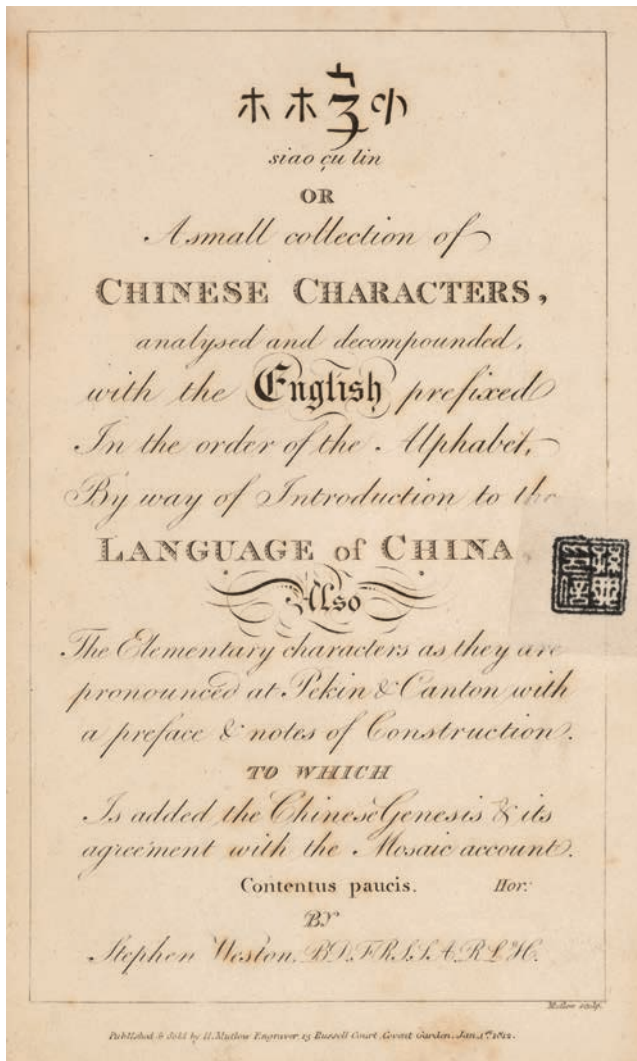 小字林
siao çu lin
OR
A small collection of
CHINESE CHARACTERS,
analysed and decompounded,
with the English prefixed
In the order of the Alphabet,
By way of Introduction to the
LANGUAGE of CHINA.
Also
The Elementary characters as they are
pronounced at Pekin & Canton with
a preface & notes of Construction.
TO WHICH
Is added the Chinese Genesis & its
agreement with the Mosaic account.
Contentus paucis. Hor:
BY
Stephen Weston, B.D.F.R.S.S.A.R.L.H.
Mutlow sculp.
Published & Sold by H. Mutlow Engraver, 15 Russell Court, Covent Garden, Jan. 1st 1812.